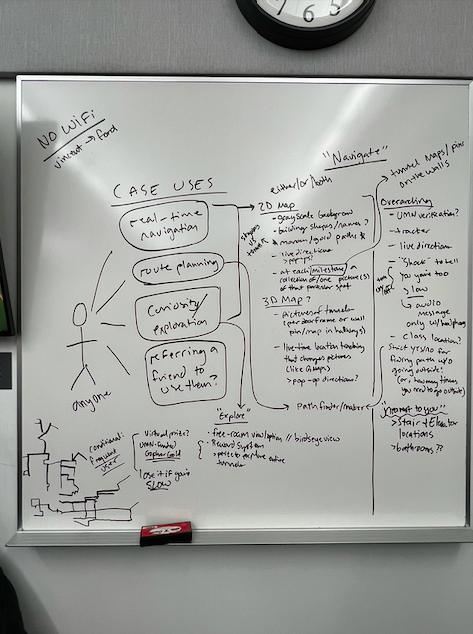 7 6 5
NO WiFi
vincent → ford
CASE USES
real-time
navigation
route planning
curiosity/
exploration
referring a
friend to
use them?
anyone
"Navigate"
either/or/both
2D Map
- grayscale background
- building shapes/names?
* maroon/gold paths *
- live directions
> pop-ups?
- at each milestone a
collection of/one picture(s)
of that particular spot
3D Map?
- pictures of tunnels
(per doorframe or wall
pin/map in hallways)
- live-time location tracking
that changes pictures
(like Gmaps)
> pop-up directions?
Pathfinder/maker
tunnel maps/pins
on the walls
Overarching
- UMN verification?
- tracker
- live direction
- "Shock" to tell
you you're too
slow
↳ audio
message
only w/ headphones
- class location?
strict yes/no for
finding path w/o
going outside!
(or, how many times
you need to go outside)
"near to you"
> Stair + Elevator
locations
> bathrooms??
"Explore"
- free-roam view/option // birdseye view
- Reward system
> prize to explore entire
tunnels
conditional:
frequent
user
Virtual prize?
UMN-funded
Gopher Gold
lose it if going
SLOW